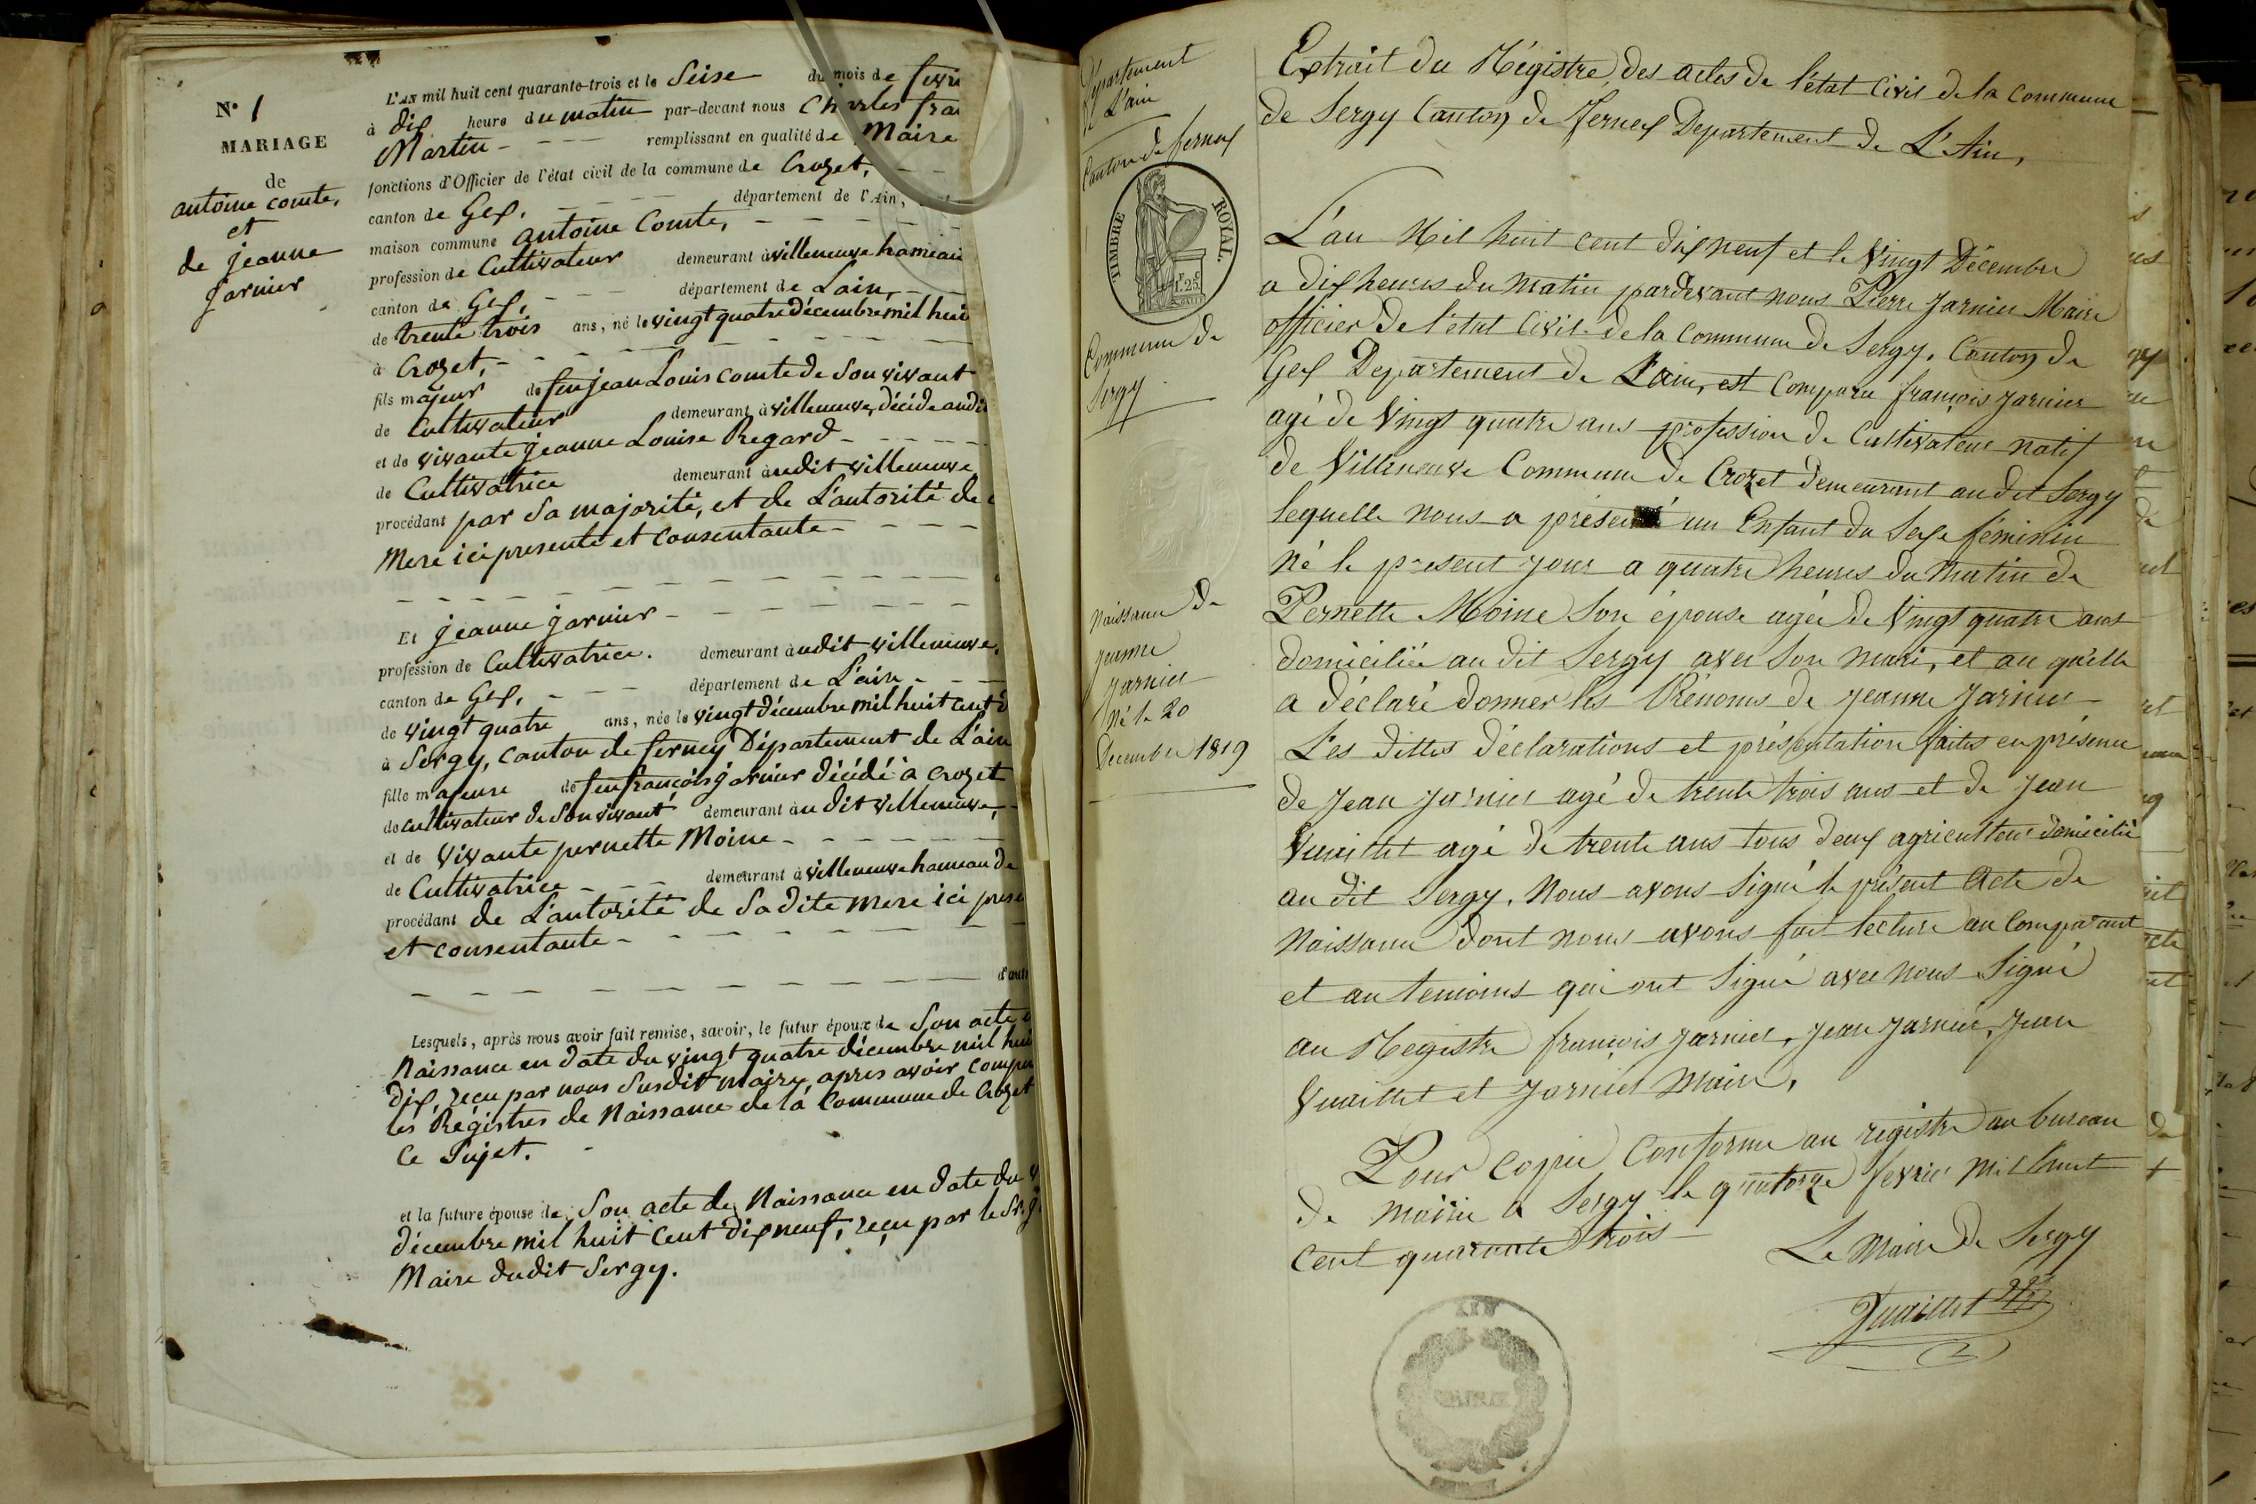 N° 1
MARIAGE
de
antoine comte,
et
de jeanne
jarnier
L'AN mil huit cent quarante-trois et le Seise du mois de fevri
à dix heure du matin par-devant nous Charles fran
Martin remplissant en qualité de Maire
fonctions d'Officier de l'état civil de la commune de Crozet,
canton de Gex, département de l'Ain,
maison commune antoine Comte,
profession de Cultivateur demeurant à villeneuve hameau
canton de Gex, département de Lain,
de trente trois ans, né le vingt quatre décembre mil hui
à Crozet,
fils majeur de feu jean Louis comte de Son vivant
de Cultivateur demeurant à villeneuve, décédé audi
et de vivante jeanne Louise Regard
de Cultivatrice demeurant à udit villeneuve
procédant par Sa majorité, et de L'autorité de
Mere ici presente et consentante
Et jeanne jarnier
profession de Cultivatrice. demeurant à udit villeneuve,
canton de Gex, département de L'ain
de vingt quatre ans, née le vingt décembre mil huit cent d
à Sergy, canton de ferney Département de L'ain
fille majeure de feu françois jarnier décédé à crozet
de cultivateur de Son vivant demeurant à u dit villeneuve,
et de vivante pernette Moine
de Cultivatrice demeurant à villeneuve hameau de
procédant de L'autorité de Sa dite mere ici prese
et consentante
d'aut
Lesquels, après nous avoir fait remise, savoir, le futur époux de Son acte
Naissance en date du vingt quatre décembre mil hui
dix, reçu par nous Susdit maire, apres avoir compu
les Régistres de Naissance de la Commune de Crozet
Ce Sujet.
et la future épouse de Son acte de Naissance en date du v
décembre mil huit Cent dix neuf, reçu par le Sr. J
Maire dudit Sergy.
Département
de L'ain
Canton de fernex
TIMBRE ROYAL.
Commune de
Sergy
Naissance de
jeanne
Jarnier
Né le 20
Decembre 1819
Extrait du Régistre, des actes de l'état Civil de la commune
de Sergy Canton de Fernex Departement de L'Ain,
L'an Mil huit cent dix neuf et le Vingt Décembre
a dix heures du Matin pardevant nous Pierre Jarnier Maire
officier de l'etat Civil de la Commune de Sergy, Canton de
Gex Departement de L'ain, est Comparu françois Jarnier
agé de Vingt quatre ans profession de Cultivateur natif
de Villeneuve Commune de Crozet demeurant au dit Sergy
lequelle nous a présenté un Enfant du Sexe féminin
né le present jour a quatre heures du Matin de
Pernette Moine Son épouse agée de Vingt quatre ans
domiciliée au dit Sergy avec Son mari, et au quelle
a déclaré donner les Prénoms de Jeanne Jarnier
Les dittes déclarations et présentation faites en présence
de Jean Jarnier agé de trente trois ans et de Jean
Vuaillet agé de trente ans tous deux agriculteur domicilié
au dit Sergy. Nous avons Signé le présent Acte de
Naissance dont nous avons fait lecture au Comparant
et au temoins qui ont Signé avec nous Signé
au Registre françois Jarnier, Jean Jarnier, Jean
Vuaillet et Jarnier Maire,
Pour Copie Conforme au régistre au bureau
de mairie a Sergy le quatorze fevrier mil huit
cent quarante trois
Le Maire de Sergy
Vuaillet